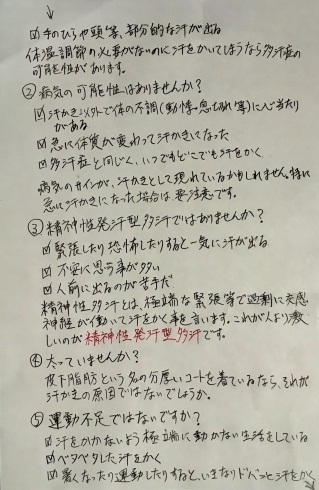 ↓
☑手のひらや頭等、部分的な汗が出る
体温調節の必要がないのに汗をかいてしまうなら多汗症の
可能性があります。
②病気の可能性はありませんか?
☑汗かき以外で体の不調(動悸・息切れ等)に心当たり
がある
☑急に体質が変わって汗かきになった
☑多汗症と同じく、いつでもどこでも汗をかく
病気のサインが、汗かきとして現れているかもしれません。特に
急に汗かきになった場合は要注意です。
③精神性発汗型多汗ではありませんか?
☑緊張したり恐怖したりすると一気に汗が出る
☑不安に思う事が多い
☑人前に出るのが苦手だ
精神性多汗とは、極端な緊張等で過剰に交感
神経が働いて汗をかく事を言います。これが人より激
しいのが精神性発汗型多汗です。
④太っていませんか?
皮下脂肪という名の分厚いコートを着ているなら、それが
汗かきの原因ではないでしょうか。
⑤運動不足ではないですか?
☑汗をかかないよう極端に動かない生活をしている
☑ベタベタした汗をかく
☑暑くなったり運動したりすると、いきなりドバっと汗をかく